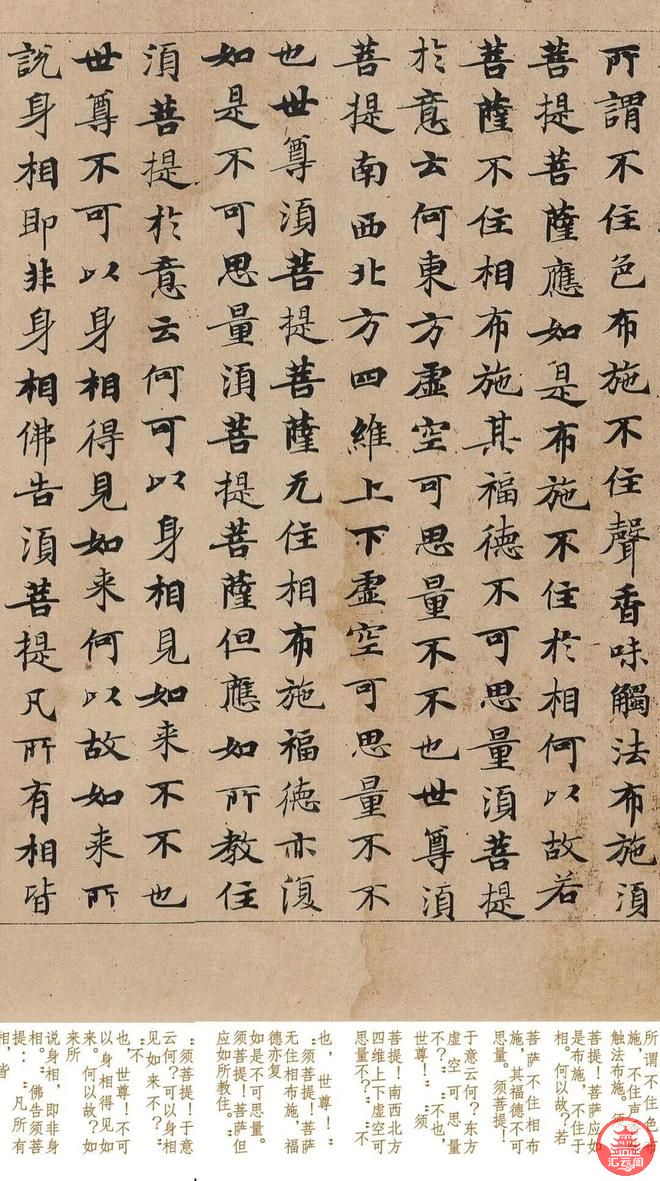 所謂不住色布施不住聲香味觸法布施須
菩提菩薩應如是布施不住於相何以故若
菩薩不住相布施其福德不可思量須菩提
於意云何東方虛空可思量不不也世尊須
菩提南西北方四維上下虛空可思量不不
也世尊須菩提菩薩无住相布施福德亦復
如是不可思量須菩提菩薩但應如所教住
須菩提於意云何可以身相見如来不不也
世尊不可以身相得見如来何以故如来所
說身相即非身相佛告須菩提凡所有相皆
所谓不住色布
施，不住声
触法布施。须
菩提！菩萨应如
是布施，不住于
相。何以故？若
菩萨不住相布
施，其福德不可
思量。须菩提！
于意云何？东方
虚空可思量
不？”“不也，
世尊！”“须
菩提！南西北方
四维上下虚空可
思量不？”“不
也，世尊！”
“须菩提！菩萨
无住相布施，福
德亦复
如是不可思量。
须菩提！菩萨但
应如所教住。”
“须菩提！于意
云何？可以身相
见如来不？”
“不
也，世尊！不可
以身相得见如
来。何以故？如
来所
说身相，即非身
相。”佛告须菩
提：“凡所有
相，皆
汇云阁